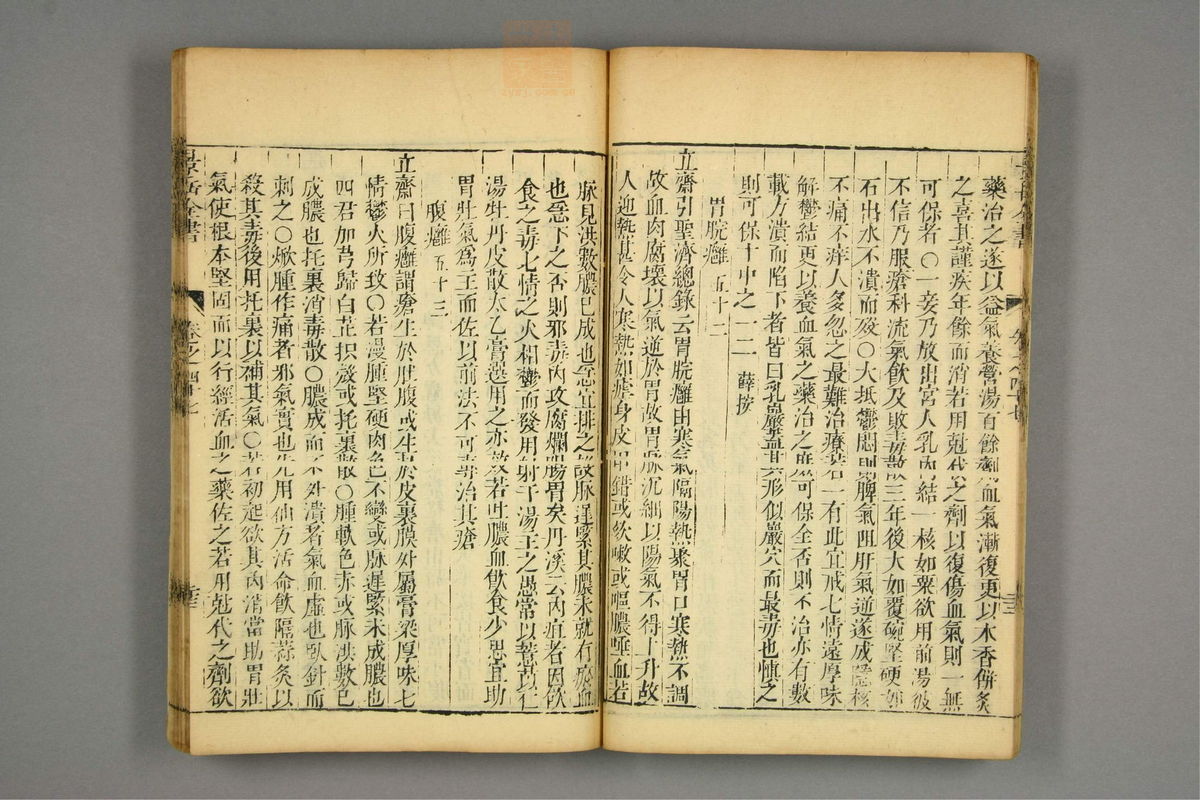 藥治之遂以益氣養營湯百餘劑血氣漸復更以木香餅灸
之喜其謹疾年餘而消若用尅伐之劑以復傷血氣則一無
可保者○一妾乃放出宮人乳內結一核如粟欲用前湯彼
不信乃服瘡科流氣飲及敗毒散三年後大如覆碗堅硬如
石出水不潰而歿○大抵鬱悶則脾氣阻肝氣逆遂成隱核
不痛不痒人多忽之最難治療若一有此宜戒七情遠厚味
解鬱結更以養血氣之藥治之庶可保全否則不治亦有數
載方潰而陷下者皆曰乳巖蓋其形似巖穴而最毒也慎之
則可保十中之一二 薛按
胃脘癰 五十二
立齋引聖濟總錄云胃脘癰由寒氣隔陽熱聚胃口寒熱不調
故血肉腐壞以氣逆於胃故胃脉沉細以陽氣不得上升故
人迎熱甚令人寒熱如瘧身皮甲錯或欬嗽或嘔膿唾血若
脉見洪數膿已成也急宜排之設脉遲緊其膿未就有瘀血
也急下之否則邪毒內攻腐爛腸胃矣丹溪云內疽者因飲
食之毒七情之火相鬱而發用射干湯主之愚常以薏苡仁
湯牡丹皮散太乙膏選用之亦效若吐膿血飲食少思宜助
胃壯氣爲主而佐以前法不可專治其瘡
腹癰 五十三
立齋曰腹癰謂瘡生於肚腹或生於皮裏膜外屬膏粱厚味七
情鬱火所致○若漫腫堅硬肉色不變或脉遲緊未成膿也
四君加芎歸白芷枳殼或托裏散○腫軟色赤或脉洪數已
成膿也托裏消毒散○膿成而不外潰者氣血虛也臥針而
刺之○焮腫作痛者邪氣實也先用仙方活命飲隔蒜灸以
殺其毒後用托裏以補其氣○若初起欲其內消當助胃壯
氣使根本堅固而以行經活血之藥佐之若用尅伐之劑欲
景岳全書
卷之四十七